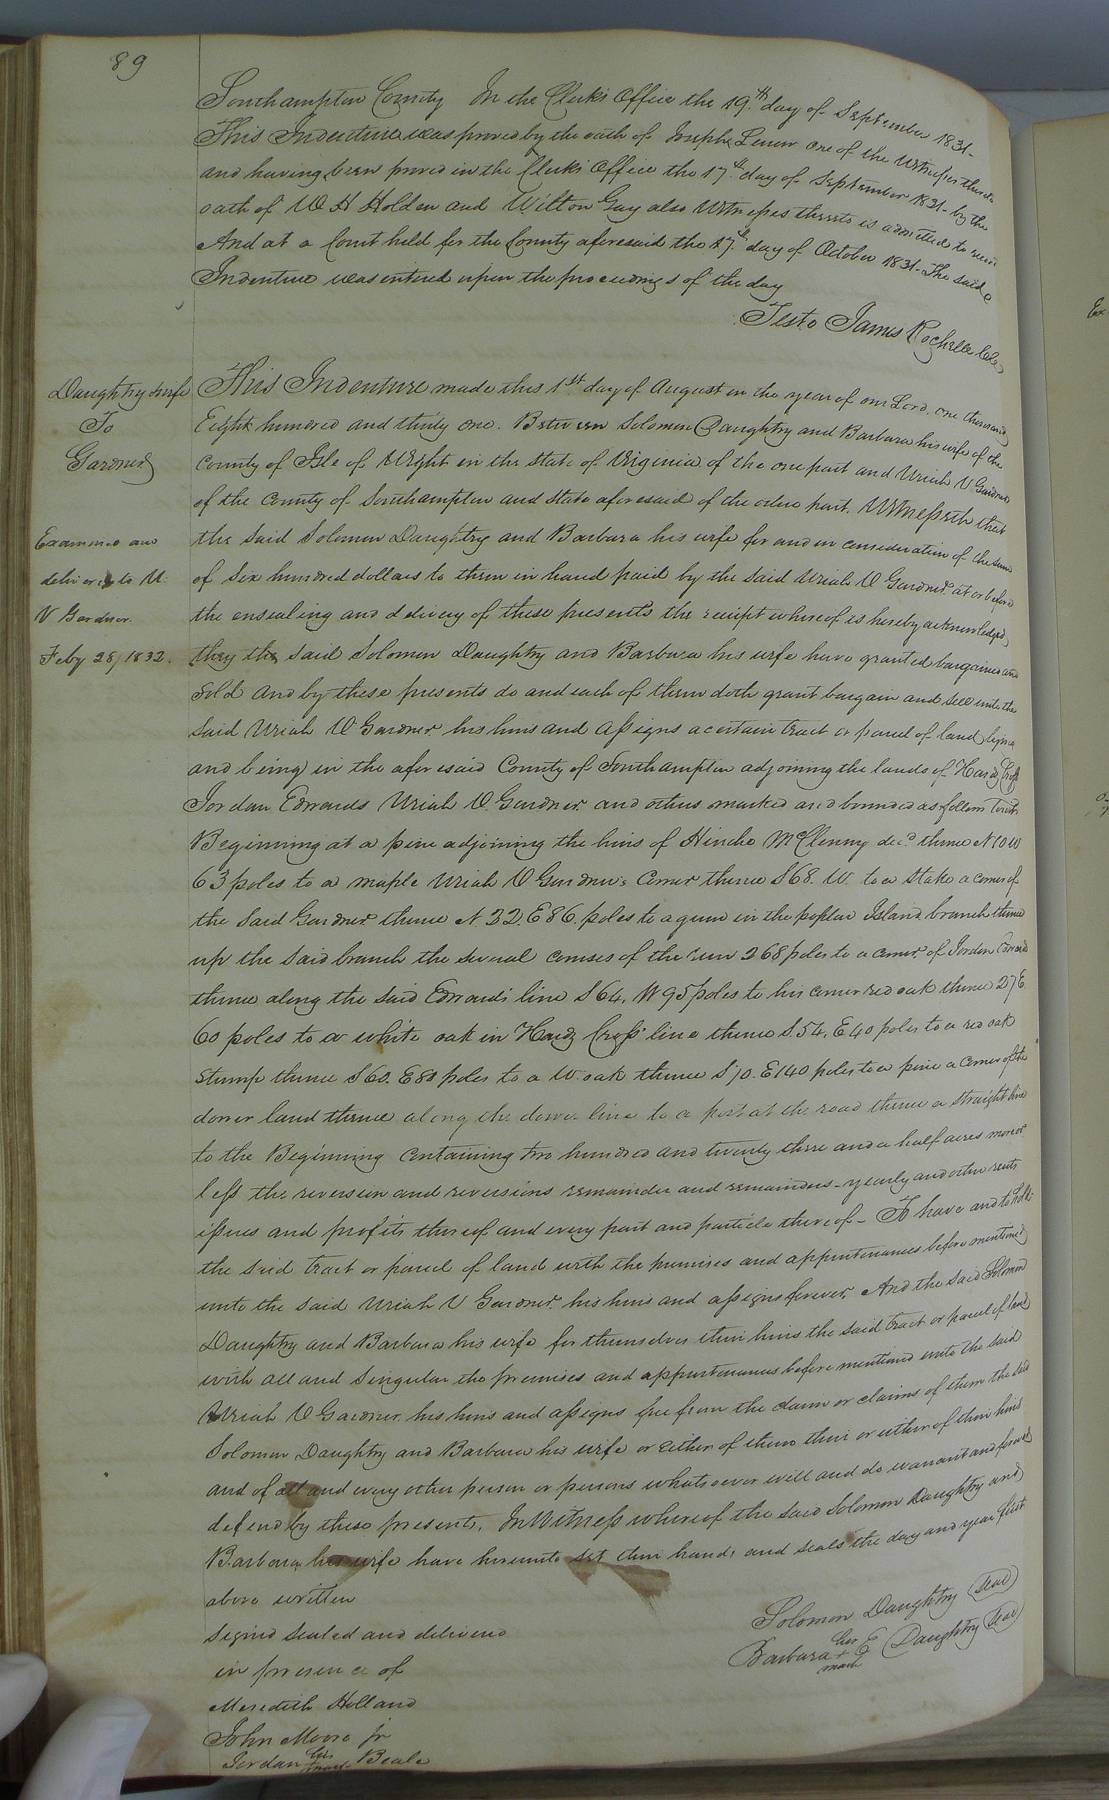 89
Southampton County In the Clerks Office the 19th day of September 1831-
This Indenture was proved by the oath of Joseph one of the Witnesses thereto
and having been proved in the Clerks Office the 17th day of September 1831- by the
oath of W H Holden and Wilton Gay also Witnesses thereto is admitted to
And at a Court held for the County aforesaid the 17th day of October 1831- The said
Indenture was entered upon the proceedings of the day
Teste James Rochelle
Daughtry & wife
To
Gardner
Examined and
delivered to U.
V Gardner
Feby 28, 1832.
This Indenture made this 1st day of August in the year of our Lord. one thousand
Eight hundred and thirty one. Between Solomon Daughtry and Barbara his wife of the
County of Isle of Wight in the State of Virginia of the one part and Uriah V Gardner
of the County of Southampton and State aforesaid of the other part. Witnesseth that
the said Solomon Daughtry and Barbara his wife for and in consideration of the sum
of Six hundred dollars to them in hand paid by the said Uriah V Gardner at or before
the ensealing and delivery of these presents the receipt whereof is hereby acknowledged,
they the said Solomon Daughtry and Barbara his wife have granted bargained and
sold and by these presents do and each of them doth grant bargain and sell unto the
said Uriah V Gardner his heirs and assigns a certain tract or parcel of land lying
and being in the aforesaid County of Southampton adjoining the lands of Hardy Cross
Jordan Edwards Uriah V. Gardner and others marked and bounded as follows towit
Beginning at a pine adjoining the heirs of Hincho McClenny decd. thence N 10 W
63 poles to a maple Uriah V Gardner's Corner thence S 68. W. to a stake a corner of
the said Gardner thence N. 32. E 86. poles to a gum in the poplar Island branch thence
up the said branch the several courses of the run 268 poles to a corner of Jordan Edwards
thence along the said Edwards line S 64. W 95 poles to his corner red oak thence 27 E
60 poles to a white oak in Hardy Cross' line thence S. 54. E 40 poles to a red oak
stump thence S 60. E 80 poles to a W. oak thence S 70. E 140 poles to a pine a corner of the
dower land thence along the dower line to a post at the road thence a straight line
to the Beginning Containing two hundred and twenty three and a half acres more or
less the reversion and reversions remainder and remainders - yearly and other rents
issues and profits thereof and every part and particle thereof - To have and to hold
the said tract or parcel of land with the premises and appurtenances before mentioned
unto the said Uriah V Gardner his heirs and assigns forever And the said Solomon
Daughtry and Barbara his wife for themselves their heirs the said tract or parcel of land
with all and singular the premises and appurtenances before mentioned unto the said
Uriah V Gardner his heirs and assigns free from the claim or claims of them the said
Solomon Daughtry and Barbara his wife or either of them their or either of their heirs
and of all and every other person or persons whatsoever will and do warrant and forever
defend by these presents. In Witness whereof the said Solomon Daughtry and
Barbara his wife have hereunto set their hands and seals the day and year first
above written
Signed sealed and delivered
in presence of
Meredith Holland
John Moore jr
Jordan his mark Beale
Solomon Daughtry (seal)
Barbara her + mark E Daughtry (seal)